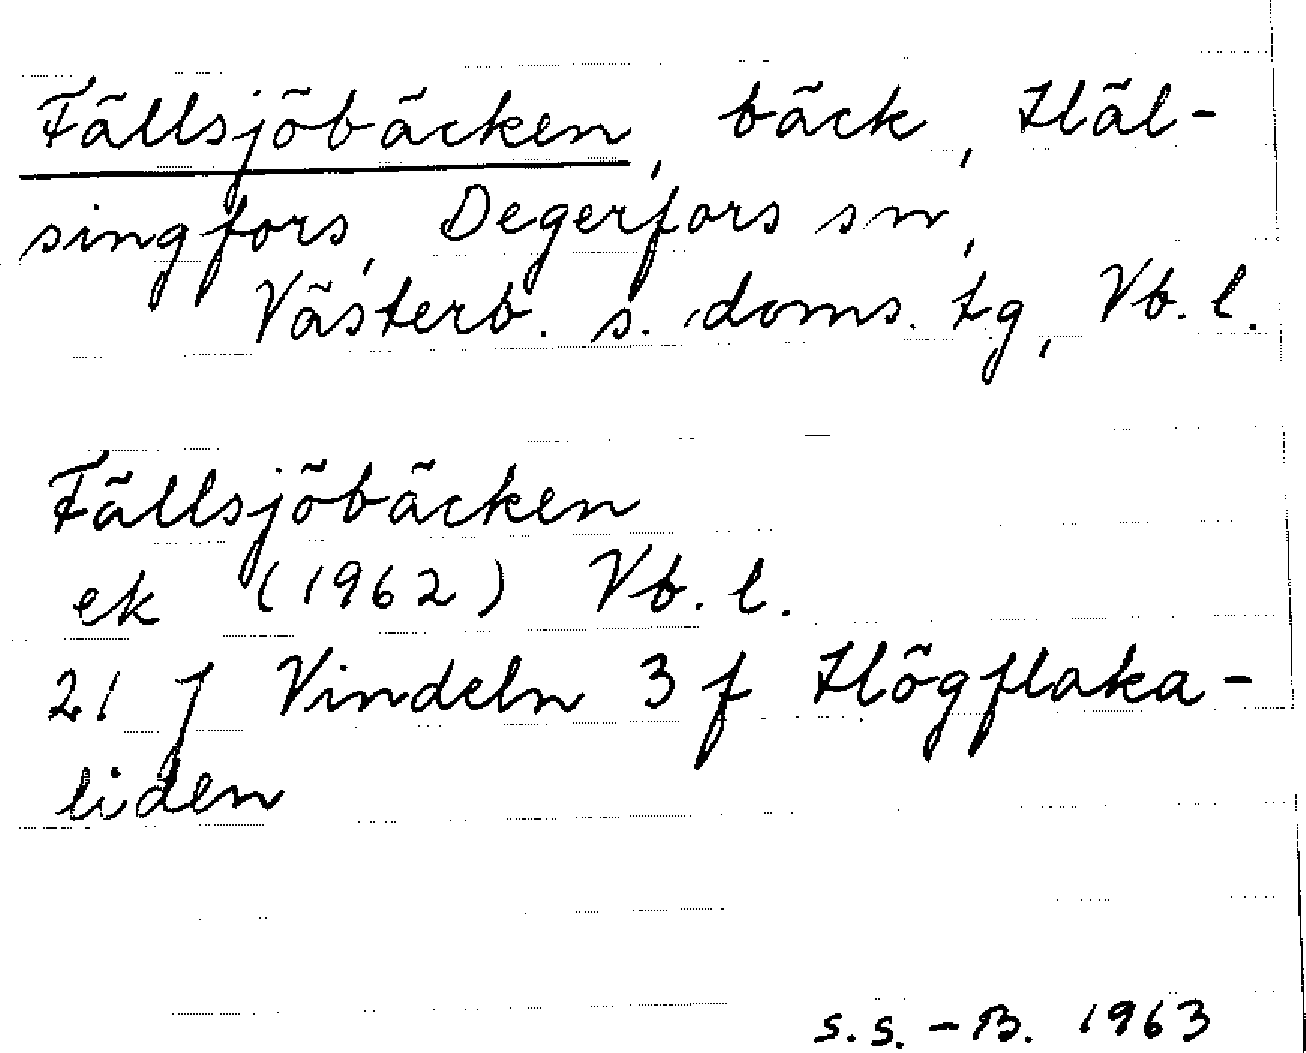 Fällsjöbäcken, bäck, Häl-
singfors, Degerfors sn,
Västerb. s. doms. tg, Vb. l.
Fällsjöbäcken
ek (1962) Vb. l.
21 J Vindeln 3 f Högflaka-
liden
S.S.-B. 1963